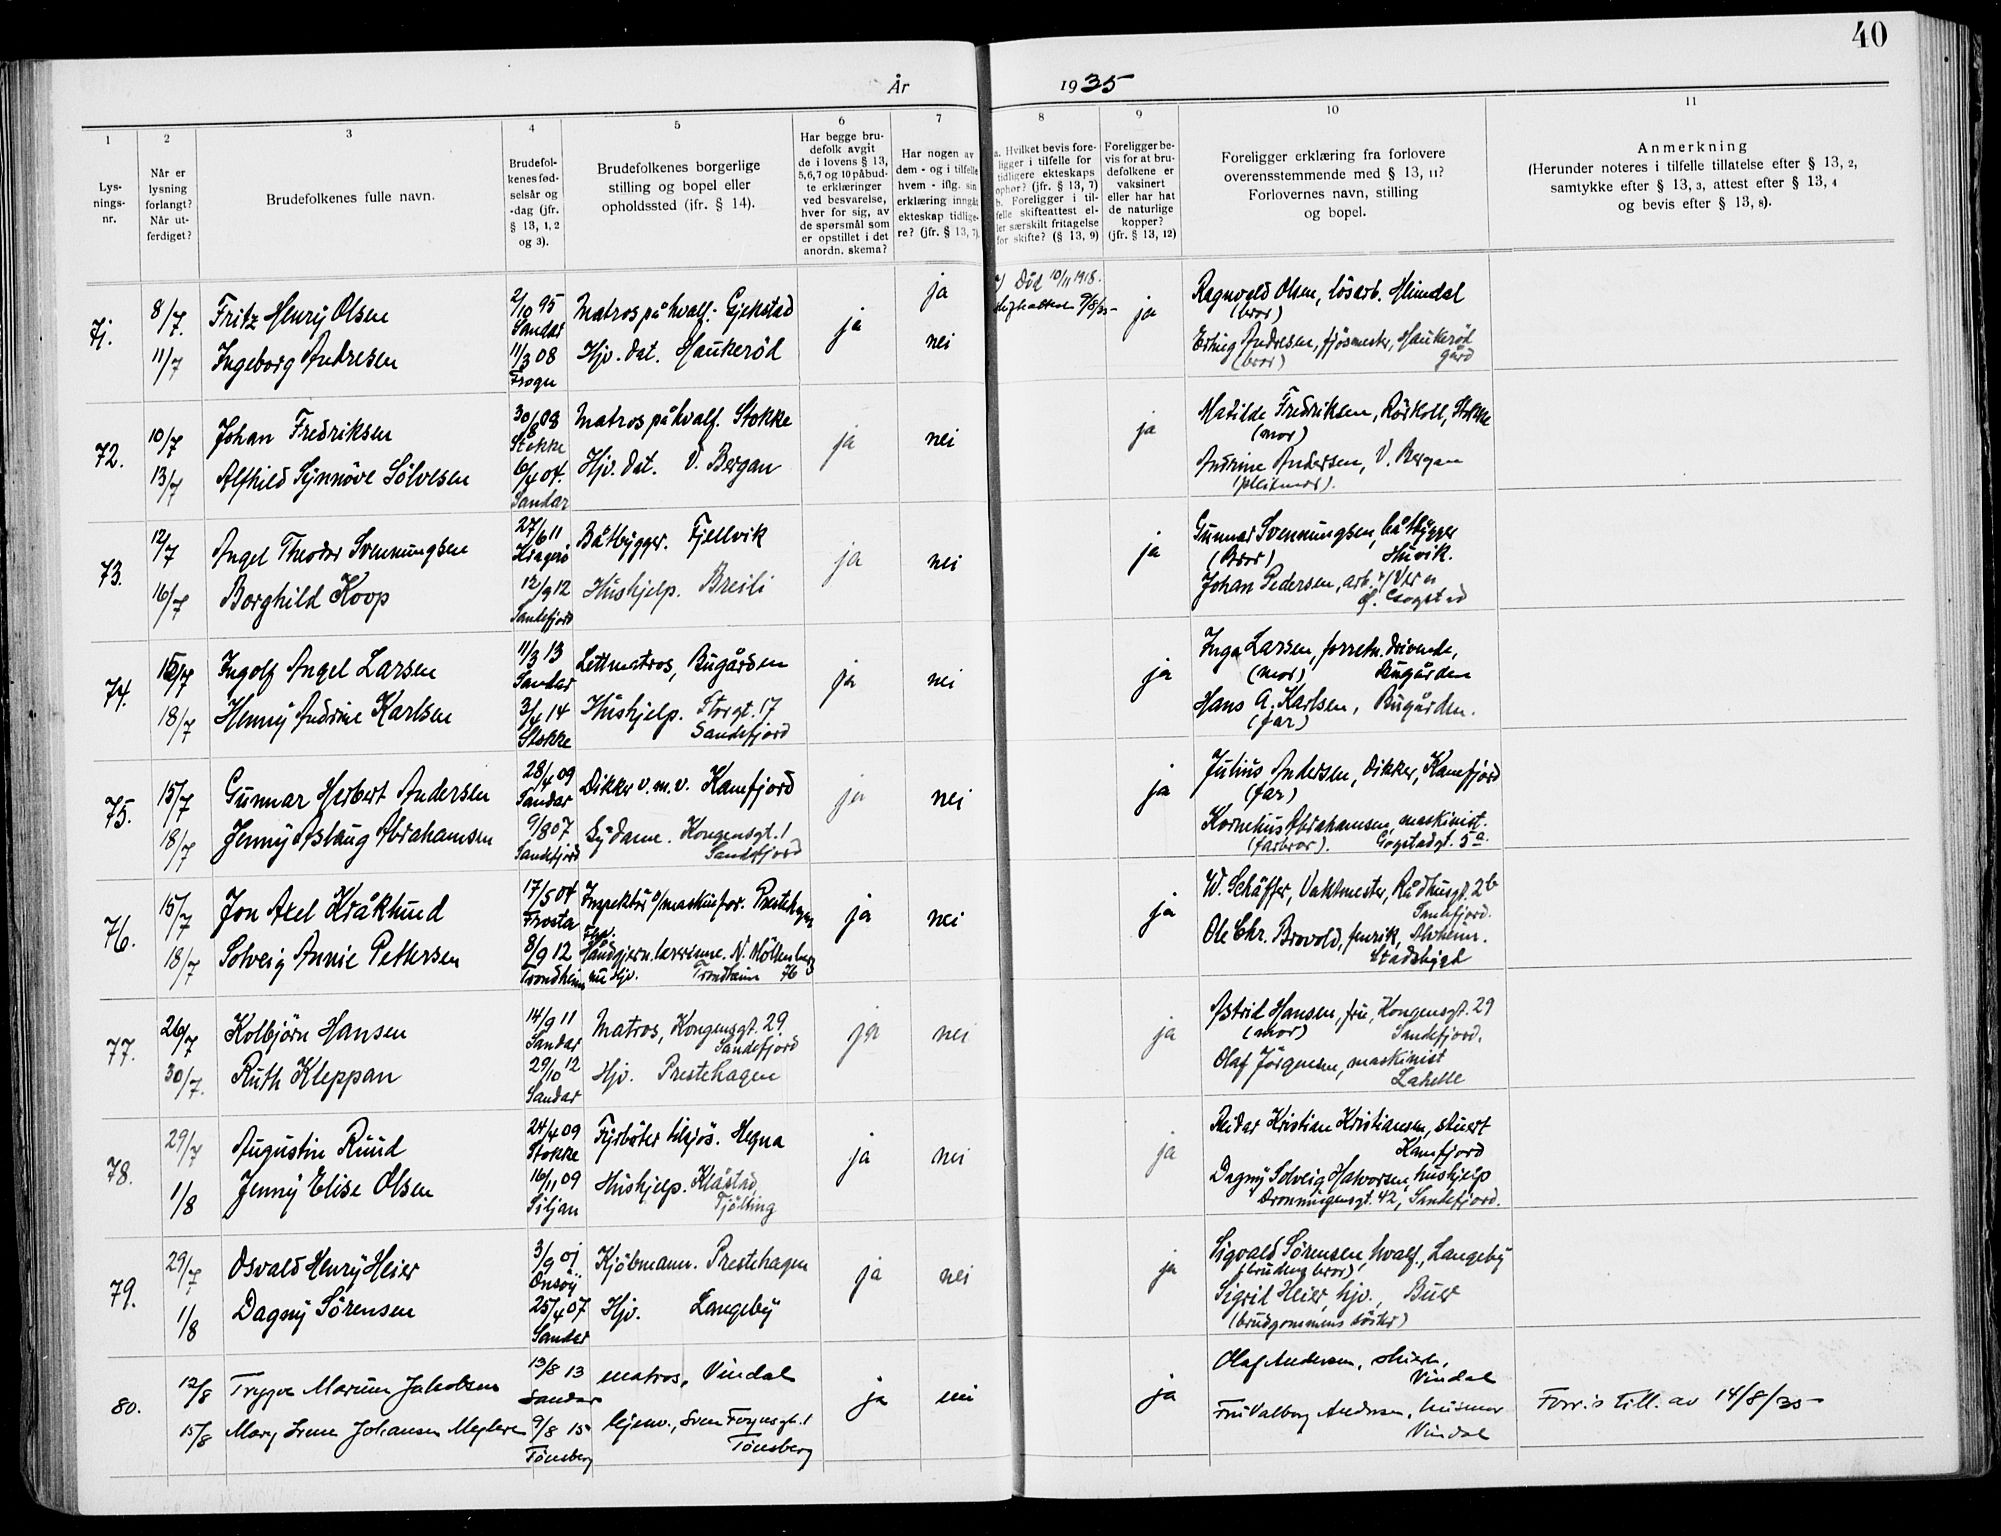 40
År 1935
1 2 3 4 5 6 7 8 9 10 11
Lys-
nings-
nr.
Når er
lysning
forlangt?
Når ut-
ferdiget?
Brudefolkenes fulle navn.
Brudefol-
kenes fød-
selsår og
-dag (jfr.
§ 13, 1, 2
og 3).
Brudefolkenes borgerlige
stilling og bopel eller
opholdssted (jfr. § 14).
Har begge bru-
defolk avgit
de i lovens § 13,
5,6,7 og 10 påbud-
te erklæringer
ved besvarelse,
hver for sig, av
de spørsmål som
er opstillet i det
anordn. skema?
Har nogen av
dem - og i tilfelle
hvem - iflg. sin
erklæring inngått
ekteskap tidlige-
re? (jfr. § 13, 7).
a. Hvilket bevis fore-
ligger i tilfelle for
tidligere ekteskaps
ophør? (jfr. § 13, 7)
b. Foreligger i til-
felle skifteattest el-
ler særskilt fritagelse
for skifte? (§ 13, 9)
Foreligger be-
vis for at bru-
defolkene er
vaksinert
eller har hat
de naturlige
kopper?
(jfr. § 13, 12)
Foreligger erklæring fra forlovere
overensstemmende med § 13, 11?
Forlovernes navn, stilling
og bopel.
Anmerkning
(Herunder noteres i tilfelle tillatelse efter § 13, 2,
samtykke efter § 13, 3, attest efter § 13, 4
og bevis efter § 13, 8).
71. 8/7. Fritz Henry Olsen 2/10 95 Sandar Matros på hvalf. Gjekstad ja ja a) Død 10/11 1918. ja Ragnvald Olsen, løsarb. Mindal
(bror)
11/7 Ingeborg Andresen 11/3 08 Frogn Hjv. dat. Haukerød nei Erling Andresen, fjøsmester, Haukerød
(bror) gård
72. 10/7 Johan Fredriksen 30/8 08 Stokke Matros på hvalf. Stokke ja nei ja Matilde Fredriksen, Rørkoll, Stokke
(mor)
13/7 Alfhild Synnøve Sølvesen 6/4 04. Sandar Hjv. dat. V. Bergan Andrine Andersen, V. Bergan
(pleiemor).
73. 12/7 Angel Theodor Svennungsen 27/6 11 Kragerø Båtbygger. Fjellvik ja nei ja Gunnar Svennungsen, båtbygger
(Bror) Huvik.
16/7 Borghild Koop 12/9 12 Sandefjord Hushjelp. Breili Johan Pedersen, arb.
74. 15/7 Ingolf Angel Larsen 11/3 13 Sandar Lettmatros, Bugården ja nei ja Inga Larsen, forretn. drivende,
(mor) Bugården
18/7 Henny Andrine Karlsen 3/4 14 Stokke Hushjelp. Storgt. 17
Sandefjord Hans A. Karlsen, Bugården.
(far)
75. 15/7 Gunnar Herbert Andersen 28/4 09 Sandar Dikker v. m. v. Kamfjord ja nei ja Julius Andersen, dikker, Kamfjord
(far)
18/7 Jenny Aslaug Abrahamsen 9/8 07 Sandefjord Sydame. Kongensgt. 1
Sandefjord Kornelius Abrahamsen, maskinist.
(farbror). Gogstadgt. 5a.
76. 15/7 Jon Axel Kråklund 17/5 04 Frosta Inspektør v/maskinfor. Prestehagen ja nei ja W. Schäffer, Vaktmester, Rådhusgt. 2b
Sandefjord.
18/7 Solveig Annie Pettersen 8/9 12 Trondheim Håndgjern. lærerinne. N. Möllenberg
nu Hjv. Trondheim 76 Ole Chr. Brovold, Alvheim.
Stadsbygd
77. 26/7 Kolbjørn Hansen 14/9 11 Sandar Matros, Kongensgt. 29.
Sandefjord ja nei ja Astrid Hansen, fru, Kongensgt. 29
(mor) Sandefjord.
30/7. Ruth Kleppan 29/10 12 Sandar Hjv. Prestehagen Olaf Jørgensen, maskinist
Lahelle
78. 29/7 Augustin Ruud 24/4 09 Stokke Fyrbøter tilsjøs. Hegna ja nei ja Reidar Kristian Kristiansen, stuert
Kamfjord
1/8 Jenny Elise Olsen 16/11 09 Siljan Hushjelp. Klåstad
Tjølling Dagny Solveig Halvorsen, hushjelp
Dronningensgt. 42, Sandefjord.
79. 29/7 Osvald Henry Heier 3/9 01 Onsøy Kjøbmann. Prestehagen ja nei ja Sigvald Sørensen, hvalf., Langeby
(brudens bror)
1/8 Dagny Sørensen 25/4 07 Sandar Hjv. Langeby Sigrid Heier, hjv., Buer
(brudgommens søster)
80. 12/8 Trygve Marum Jakobsen 13/8 13 Sandar matros, Vindal ja nei ja Olaf Andersen,
Vindal
15/8 Mary Irene Johansen 9/8 15 Tønsberg hjemv., Sven Foynsgt. 1
Tønsberg Fru Valborg Andersen, husmor
Vindal Forr.s till. av 14/8/35